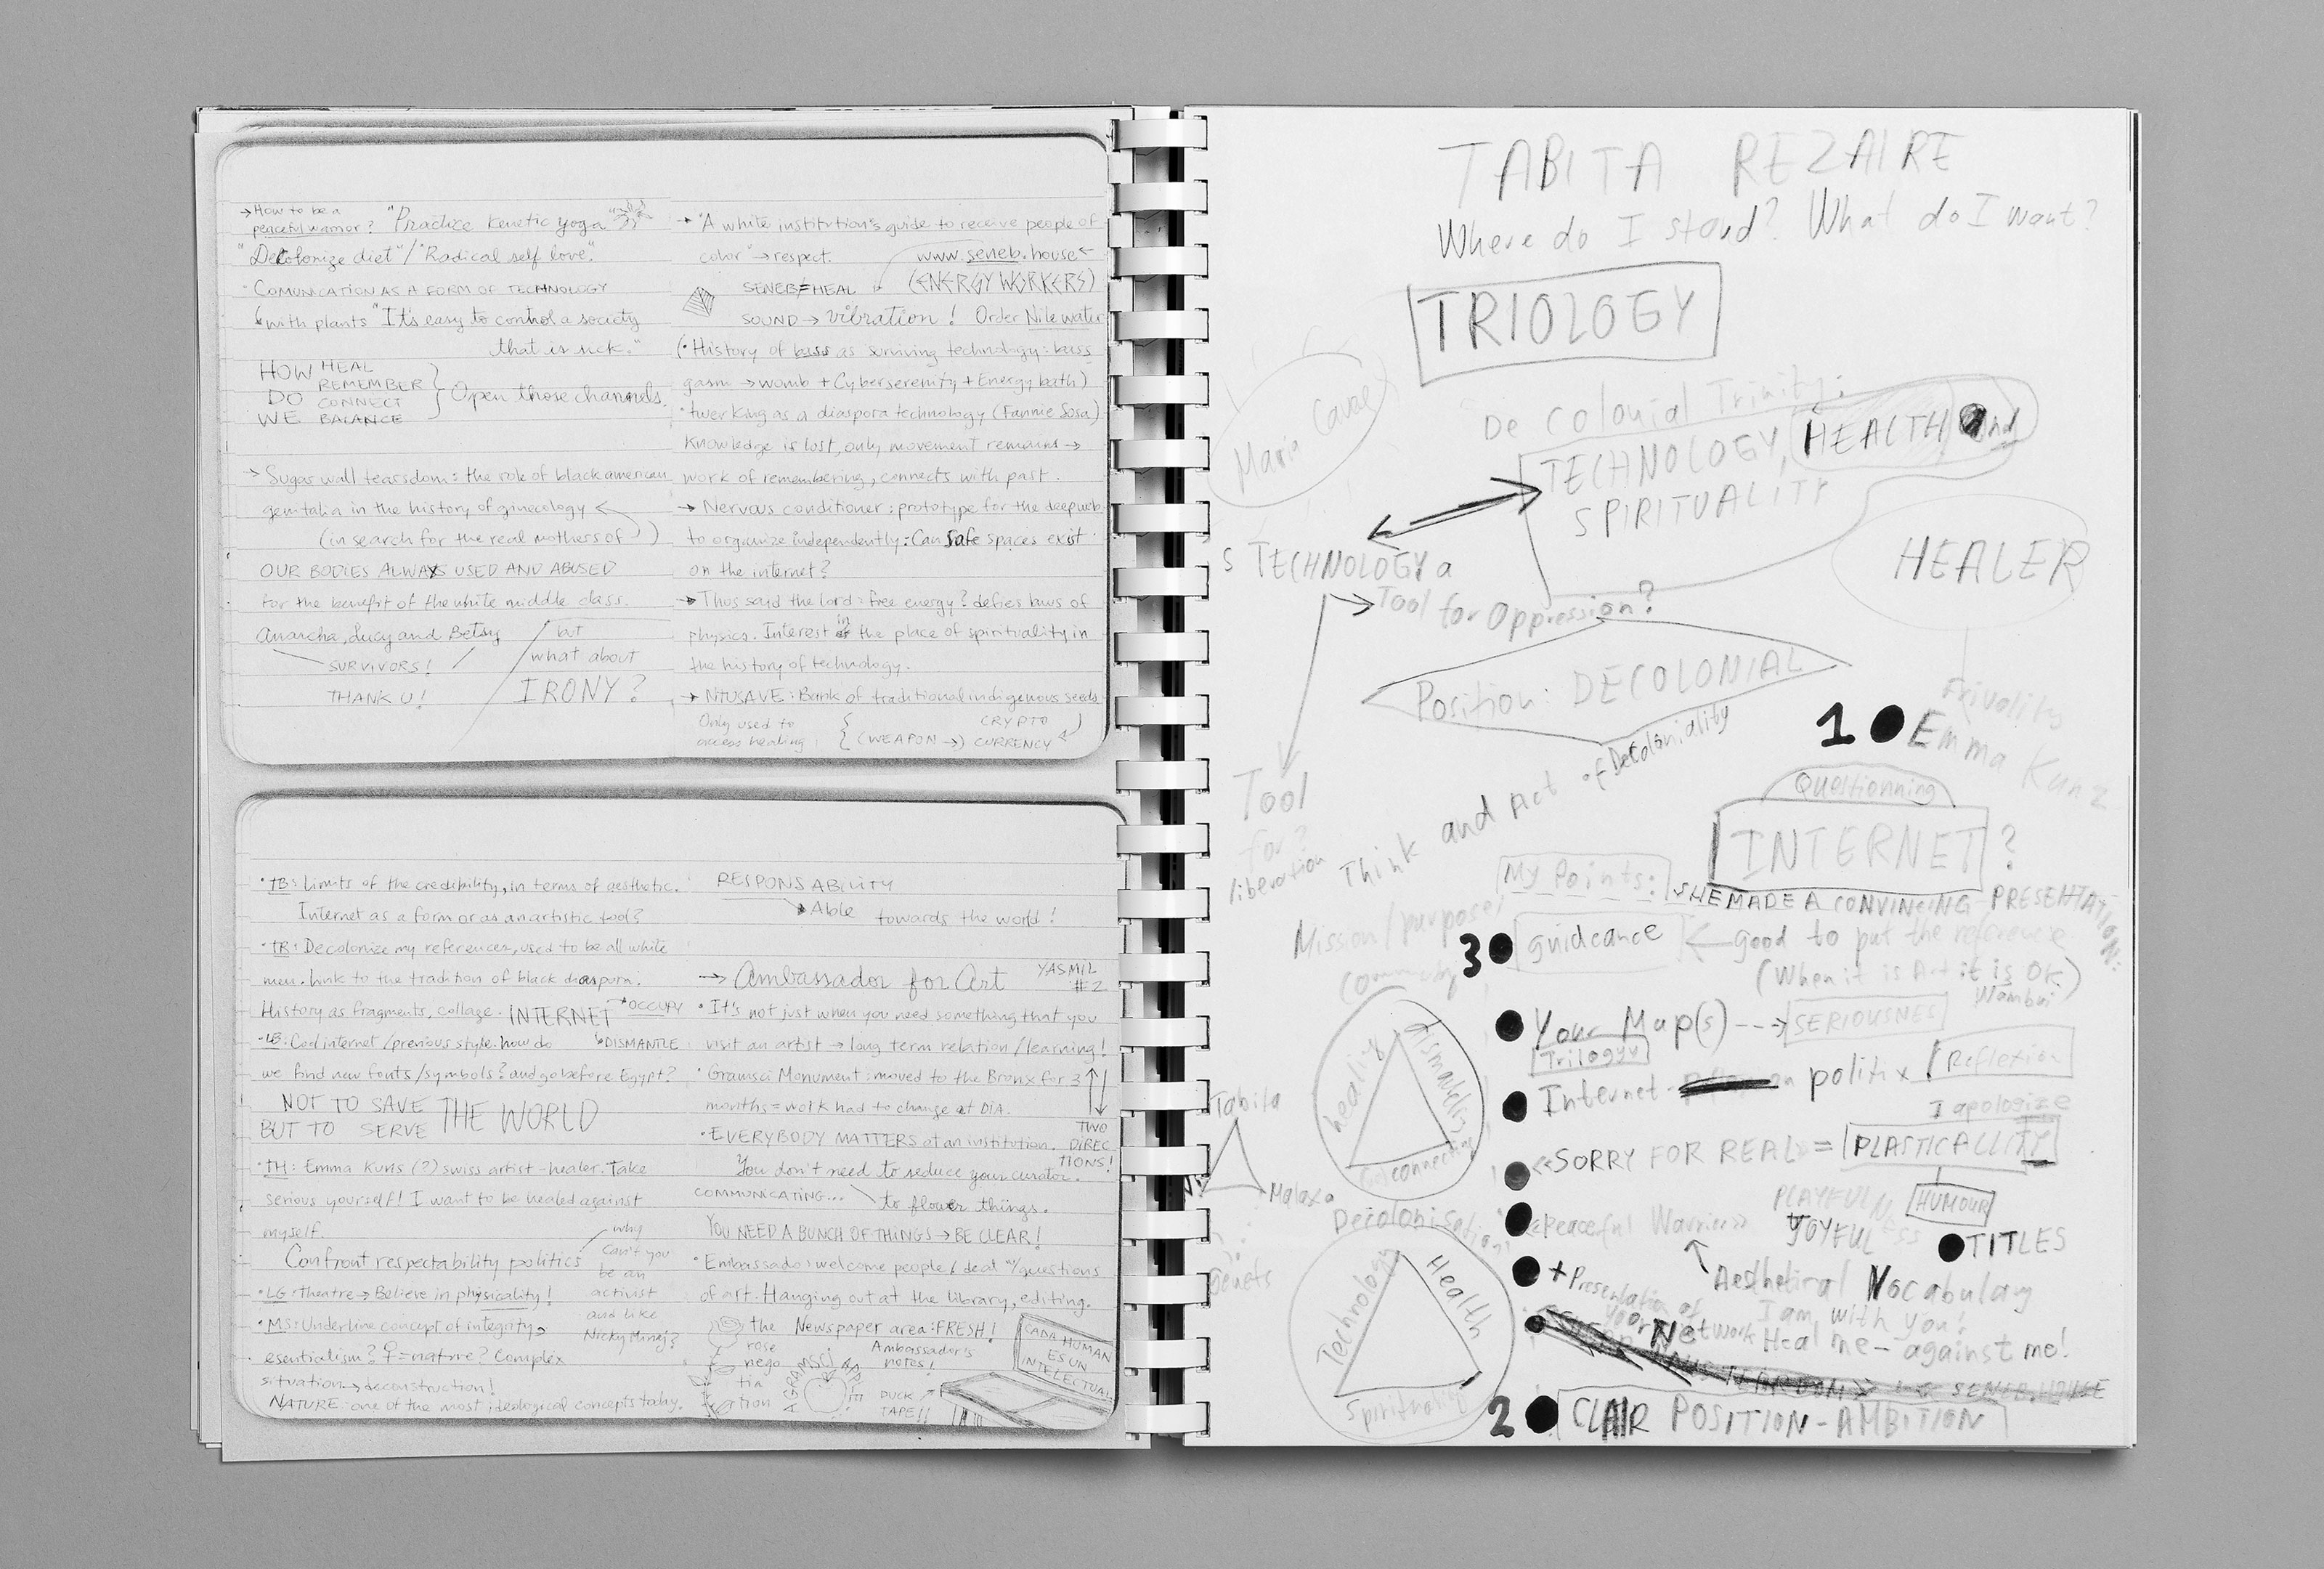 →How to be a
peaceful warrior? "Practice Kenetic yoga"
"Decolonize diet"/"Radical self love".
· COMUNICATION AS A FORM OF TECHNOLOGY
with plants "It's easy to control a society
that is sick."
HOW HEAL
REMEMBER
DO CONNECT
WE BALANCE
Open those channels.
→ Sugar wall teardom: the role of black american
genitalia in the history of ginecology ←
(in search for the real mothers of )
OUR BODIES ALWAYS USED AND ABUSED
for the benefit of the white middle class.
Anarcha, Lucy and Betsy
SURVIVORS!
THANK U!
but
what about
IRONY?
→ "A white institution's guide to receive people of
color" → respect. www.seneb.house
SENEB=HEAL (ENERGY WORKERS)
SOUND → vibration! Order Nile water
(· History of bass as surviving technology: bass
gasm → womb + Cyberserenity + Energy bath)
· twerking as a diaspora technology (Fannie Sosa)
Knowledge is lost, only movement remains →
work of remembering, connects with past.
→ Nervous conditioner: prototype for the deepweb
to organize independently: Can safe spaces exist
on the internet?
→ Thus said the lord: free energy? defies laws of
physics. Interest in the place of spirituality in
the history of technology.
→ NTUSAVE: Bank of traditional indigenous seeds
Only used to
access healing
(WEAPON →) CRYPTO
CURRENCY
· TB: Limits of the credibility, in terms of aesthetic.
Internet as a form or as an artistic tool?
· TR: Decolonize my references, used to be all white
men. Link to the tradition of black diaspora.
History as fragments, collage. INTERNET → OCCUPY
DISMANTLE
· LB: Cool internet/previous style. how do
we find new fonts/symbols? and go before Egypt?
NOT TO SAVE THE WORLD
BUT TO SERVE
· TH: Emma Kuns (?) swiss artist-healer. Take
serious yourself! I want to be healed against
myself.
Confront respectability politics
why
can't you
be an
activist
and like
Nicky Minaj?
· LG: theatre → Believe in physicality!
· MS: Underline concept of integrity
esentialism? ♀=nature? Complex
situation → deconstruction!
NATURE: one of the most ideological concepts today.
RESPONSABILITY
Able towards the world!
→ Ambassador for Art YASMIL
#2
· It's not just when you need something that you
visit an artist → long term relation/learning!
· Gramsci Monument: moved to the Bronx for 3
months = work had to change at DIA.
TWO
DIREC
TIONS!
· EVERYBODY MATTERS at an institution.
You don't need to seduce your curator.
COMMUNICATING... to flower things.
YOU NEED A BUNCH OF THINGS → BE CLEAR!
· Embassador: welcome people/deal w/questions
of art. Hanging out at the library, editing.
the Newspaper area: FRESH!
rose
nego
tia
tion
Ambassador's
notes!
DUCK
TAPE!!
CADA HUMAN
ES UN
INTELECTUAL
TABITA REZAIRE
Where do I stand? What do I want?
TRIOLOGY
Maria
De Colonial Trinity:
TECHNOLOGY, HEALTH and
SPIRITUALITY
S TECHNOLOGY a
→ Tool for Oppression?
HEALER
Position: DECOLONIAL
Tool
for?
liberation
Think and Act of Decoloniality
Frivolity
1 ● Emma Kunz
Questionning
INTERNET ?
My Points:
SHE MADE A CONVINCING PRESENTATION:
Mission/purpose,
Community
3 ● guideance ← good to put the reference
(When it is Art it is OK)
Wambui
● Your Map(s) ---> SERIOUSNES
Trilogyy
● Internet on politix Reflexion
I apologize
● «SORRY FOR REAL» = PLASTICALLITY
healing
dismanteling
connecting
Tabita
Malaxa
Decolonisation
● «Peaceful Warrier» PLAYFULNESS HUMOUR
JOYFUL
● TITLES
Aesthetical Vocabulary
● + Presentation of
your Network
I am with you!
Heal me - against me!
SENEB.HOUSE
Technology
Health
Spirituality
2 ● CLAIR POSITION-AMBITION